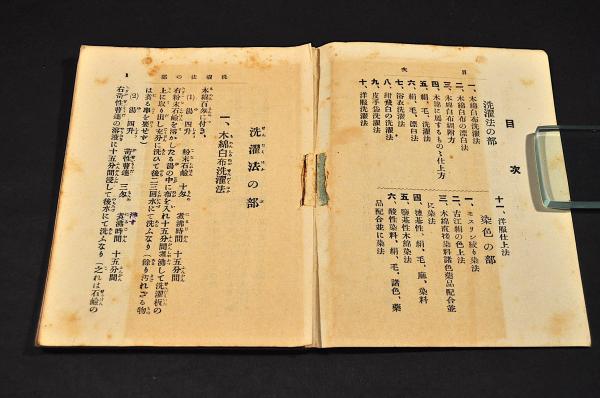 目次
目次
洗濯法の部
一、木綿白布洗濯法
二、木綿白布の漂白法
三、木綿白布糊附方
四、木綿に属するものゝ仕上方
五、絹、毛、洗濯法
六、絹、毛、漂白法
七、浴衣洗濯法
八、紺飛白の洗濯法
九、皮手袋洗濯法
十、洋服洗濯法
十一、洋服仕上法
染色の部
一、モスリン絞り染法
二、古江絹の色上法
三、木綿直接染料諸色藥品配合並
に染法
四、塩基性、絹、毛、麻、染料
五、塩基性木綿染法
六、酸性染料、絹、毛、諸色、藥
品配合並に染法
洗濯法の部
1
洗濯法の部
一、木綿白布洗濯法
木綿百匁に付き、
(1) 湯 四升 粉末石鹸 十匁 煮沸時間 十五分間
右粉末石鹸を溶かしたる湯の中に布を入れ十五分間煮沸して洗濯板の
上に取り出し充分に洗ひて後二三回水にて洗ふなり(餘り汚れざる物
は煮る事を要せず)
(2) 湯 四升 苛性曹達 三匁 煮沸時間 十五分間
右苛性曹達の溶液に十五分間浸して後水にて洗ふなり(之れは石鹸の